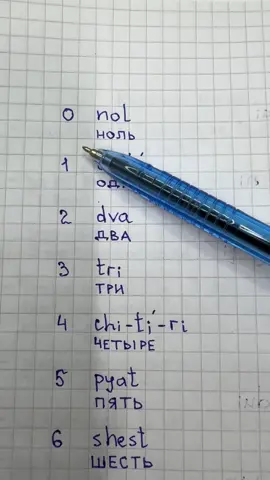 0 nol
НОЛЬ
1
2 dva
ДВА
3 tri
ТРИ
4 chi-tí-ri
ЧЕТЫРЕ
5 pyat
ПЯТЬ
6 shest
ШЕСТЬ